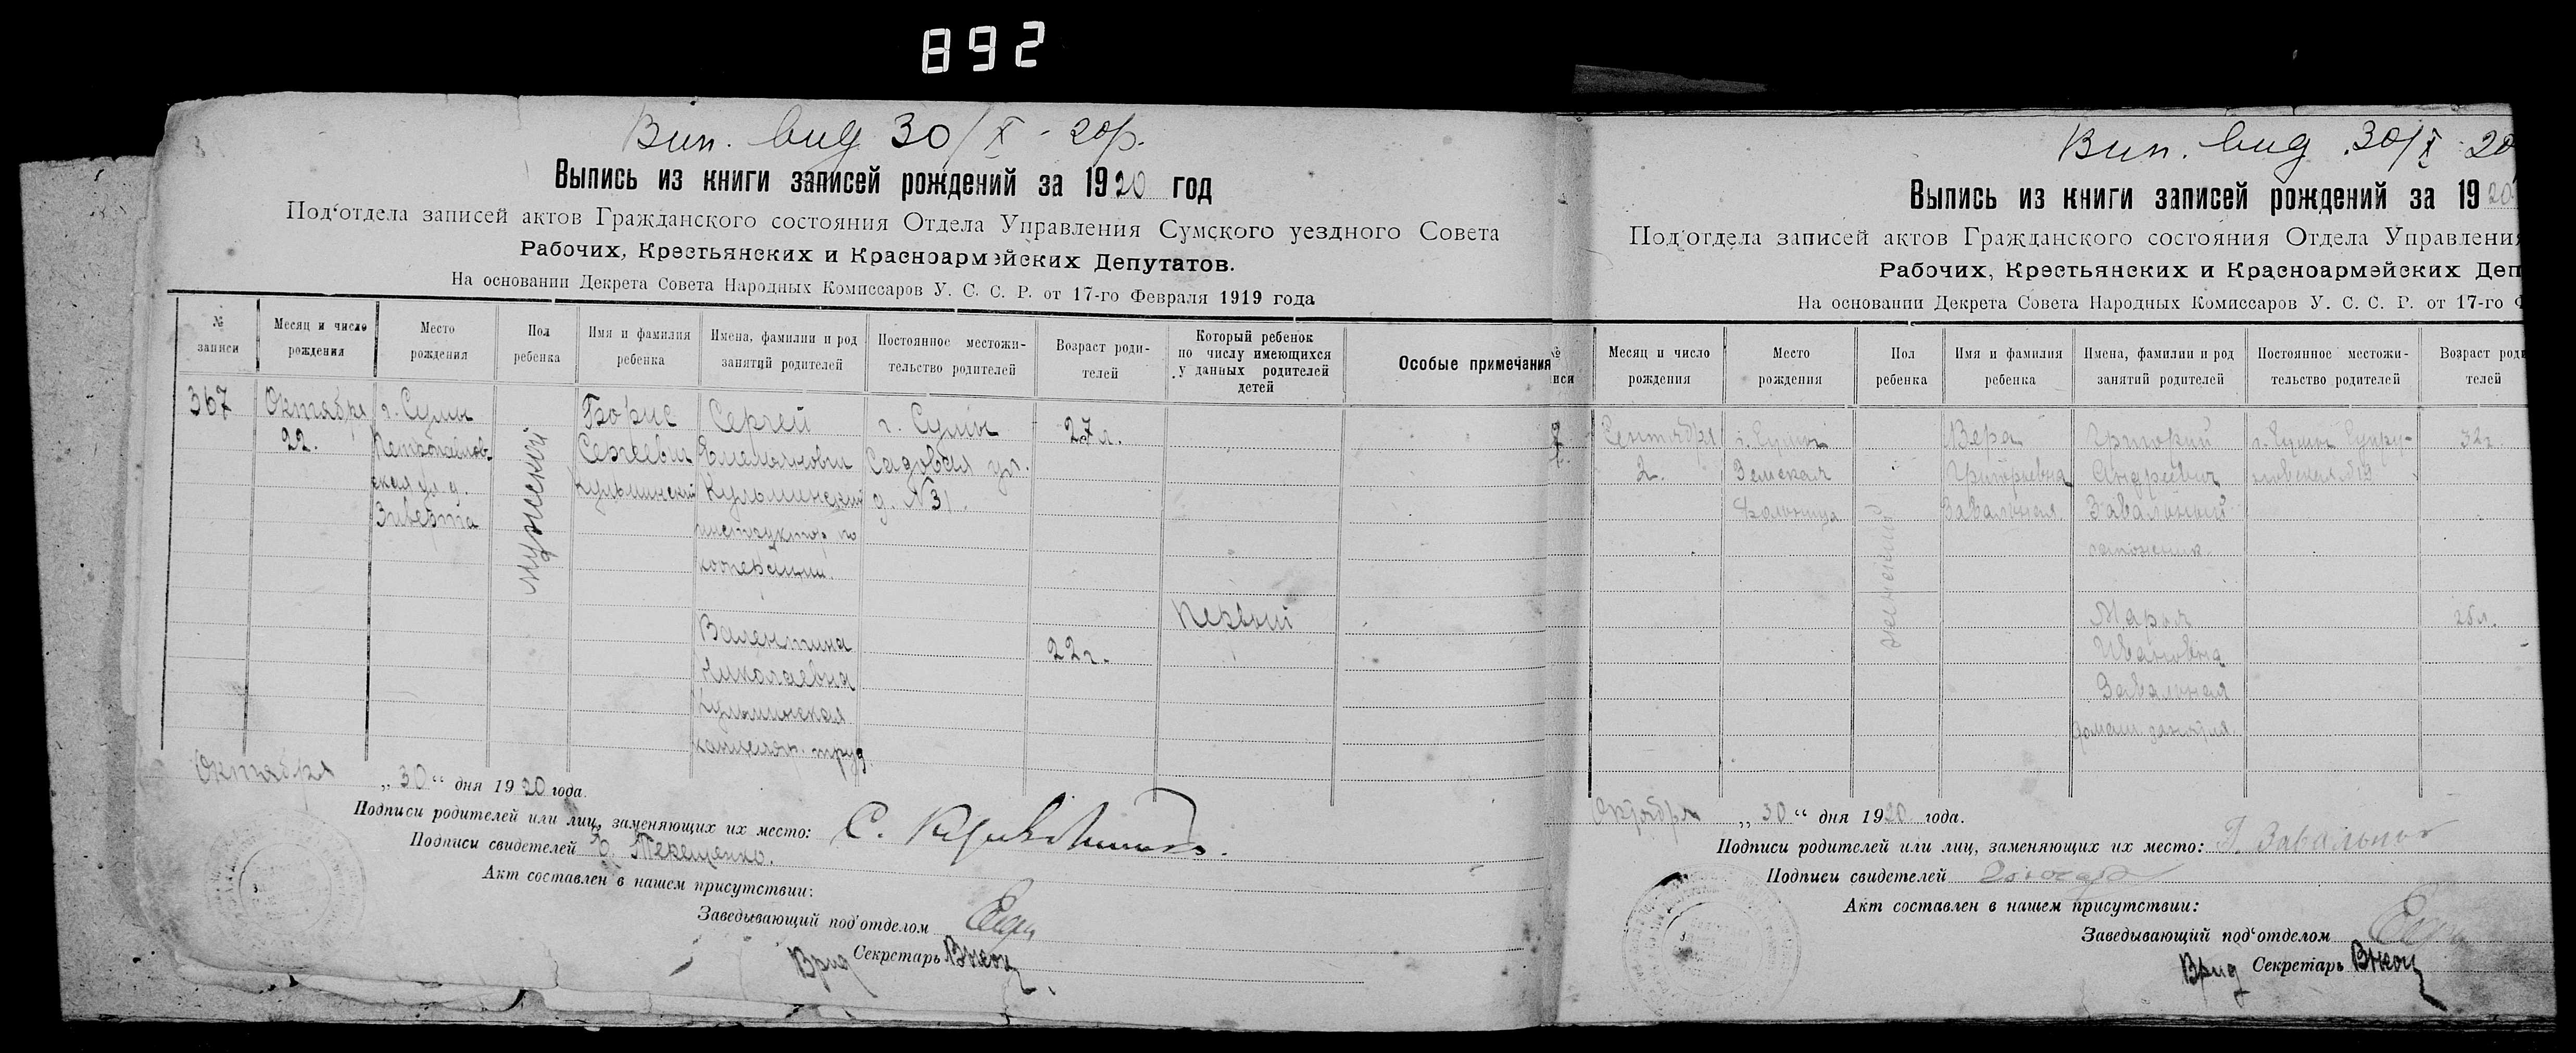 892
Вип. вид 30/X - 20р.
Выпись из книги записей рождений за 1920 год
Под‘отдела записей актов Гражданского состояния Отдела Управления Сумского уездного Совета
Рабочих, Крестьянских и Красноармейских Депутатов.
На основании Декрета Совета Народных Комиссаров У. С. С. Р. от 17-го Февраля 1919 года
№ записи
Месяц и число рождения
Место рождения
Пол ребенка
Имя и фамилия ребенка
Имена, фамилии и род занятий родителей
Постоянное местожительство родителей
Возраст родителей
Который ребенок по числу имеющихся у данных родителей детей
Особые примечания
367
Октября
22.
г. Сумы
ская ул. д.
Зиверта
мужеский
Борис
Сергеевич
Кульминский
Сергей
Емельянович
Кульминский
инструктор по
кооперации.
Валентина
Николаевна
Кульминская
канцеляр. труд.
г. Сумы
Садовая ул.
д. № 31.
27 л.
22 г.
Первый
Октября „30“ дня 1920 года.
Подписи родителей или лиц, заменяющих их место: С.
Подписи свидетелей
Акт составлен в нашем присутствии:
Заведывающий под‘отделом
Врид Секретарь
Вип. вид. 30/X - 20
Выпись из книги записей рождений за 1920
Под‘отдела записей актов Гражданского состояния Отдела Управления
Рабочих, Крестьянских и Красноармейских Деп
На основании Декрета Совета Народных Комиссаров У. С. С. Р. от 17-го Ф
№
иси
Месяц и число рождения
Место рождения
Пол ребенка
Имя и фамилия ребенка
Имена, фамилии и род занятий родителей
Постоянное местожительство родителей
Возраст роди
телей
Сентября
2.
г. Сумы
Земская
больница
женский
Вера
Григорьевна
Завальная
Григорий
Андреевич
Завальный
сапожник
Мария
Ивановна
Завальная
г. Сумы Супру-
новская № 19
32 г.
25 л.
Октября „30“ дня 1920 года.
Подписи родителей или лиц, заменяющих их место: Г. Завальный
Подписи свидетелей
Акт составлен в нашем присутствии:
Заведывающий под‘отделом
Врид Секретарь